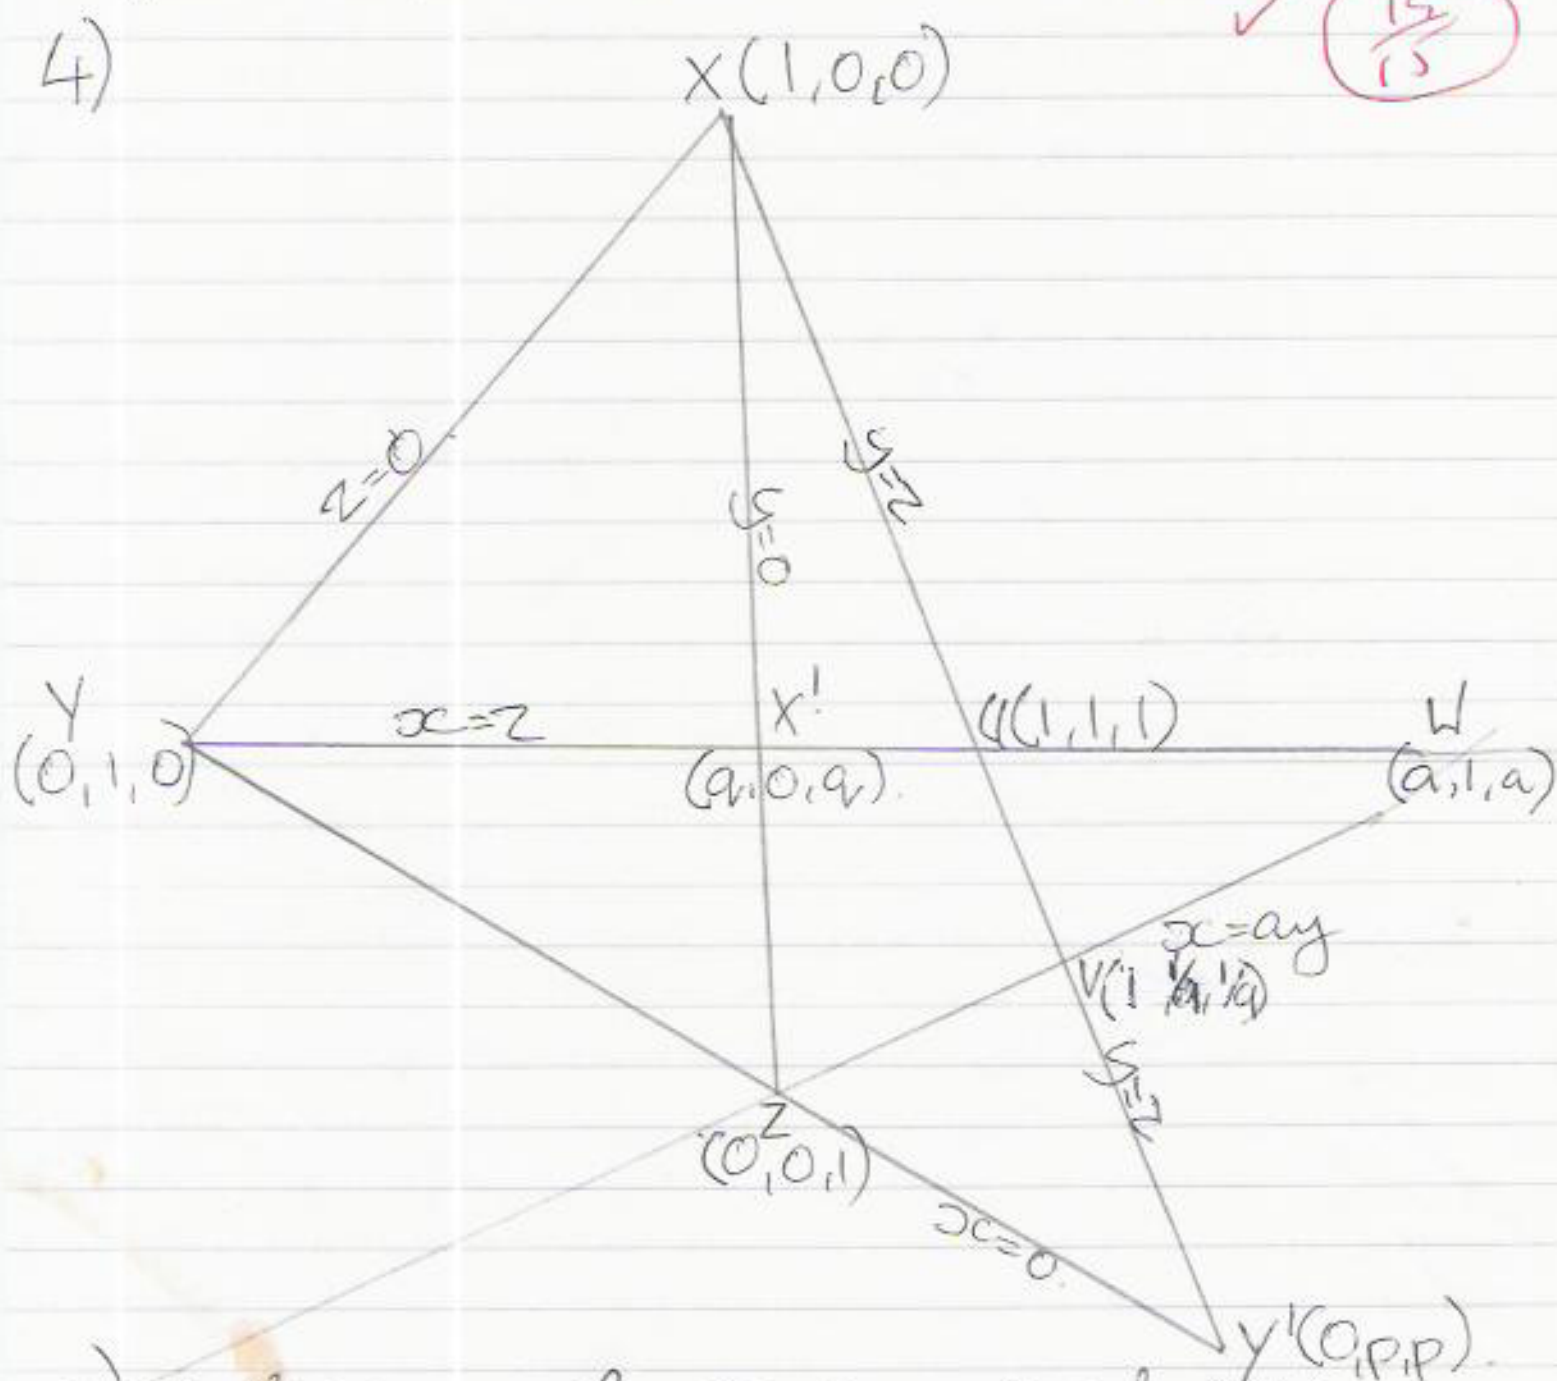 4)
X(1,0,0)
15
z=0
y=z
y=0
Y
(0,1,0)
x=z
X'
(q,0,q).
U(1,1,1)
W
(a,1,a)
x=ay
V(1 1/a,1/a)
y=z
Z
(0,0,1)
x=0.
Y'(0,p,p).